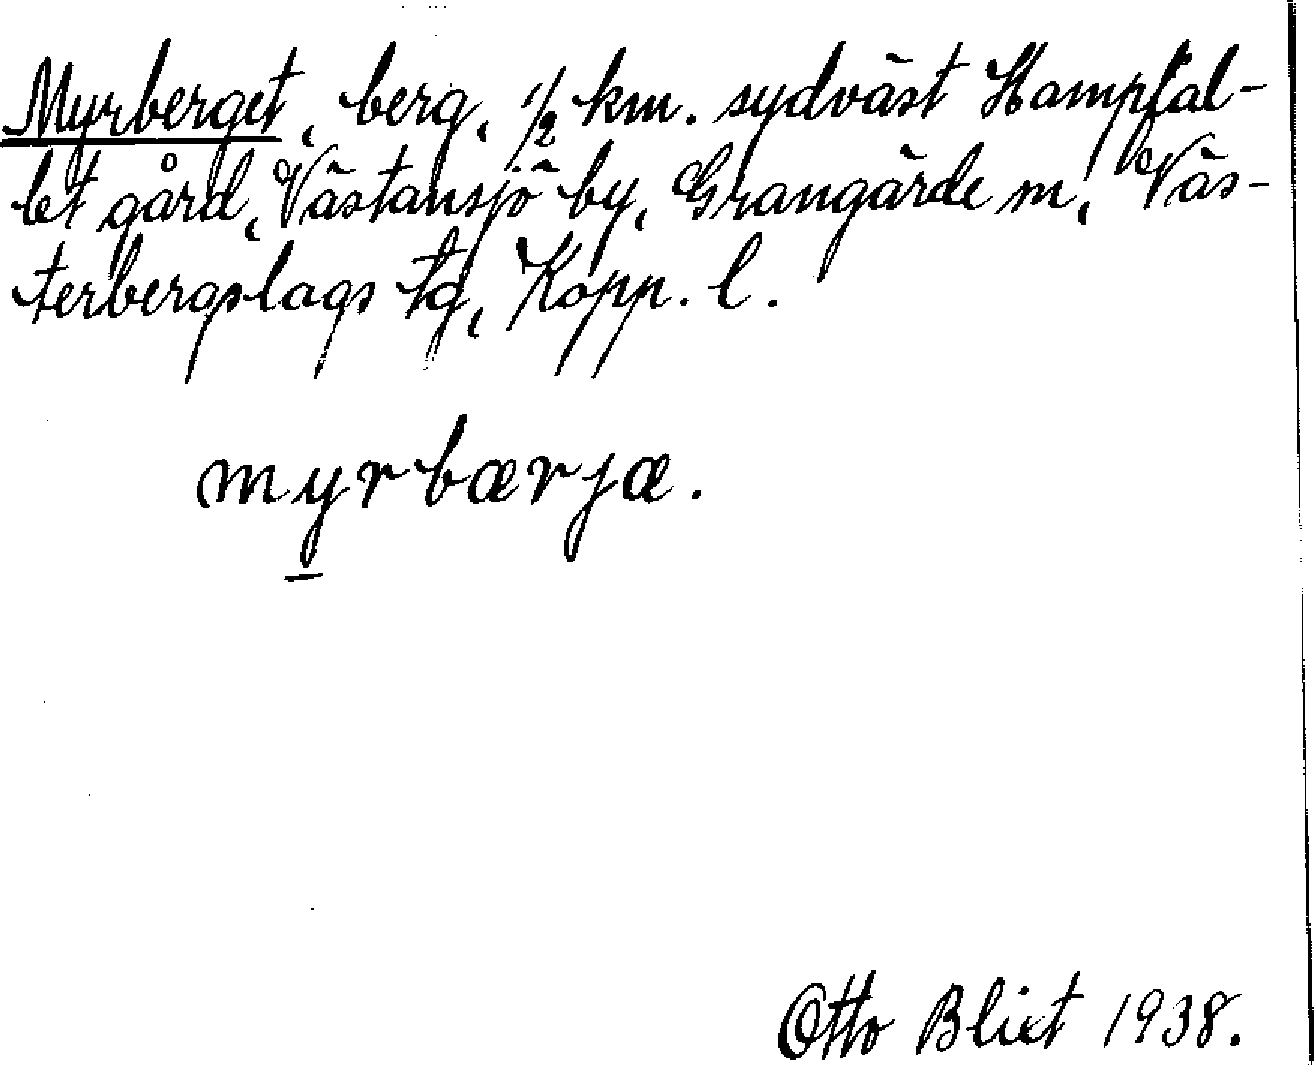 Myrberget, berg, 1/2 km. sydväst Hampfal-
let gård, Västansjö by, Grangärde sn, Väs-
terbergslags tg, Kopp. l.
myrbærjæ.
Otto Blixt 1938.